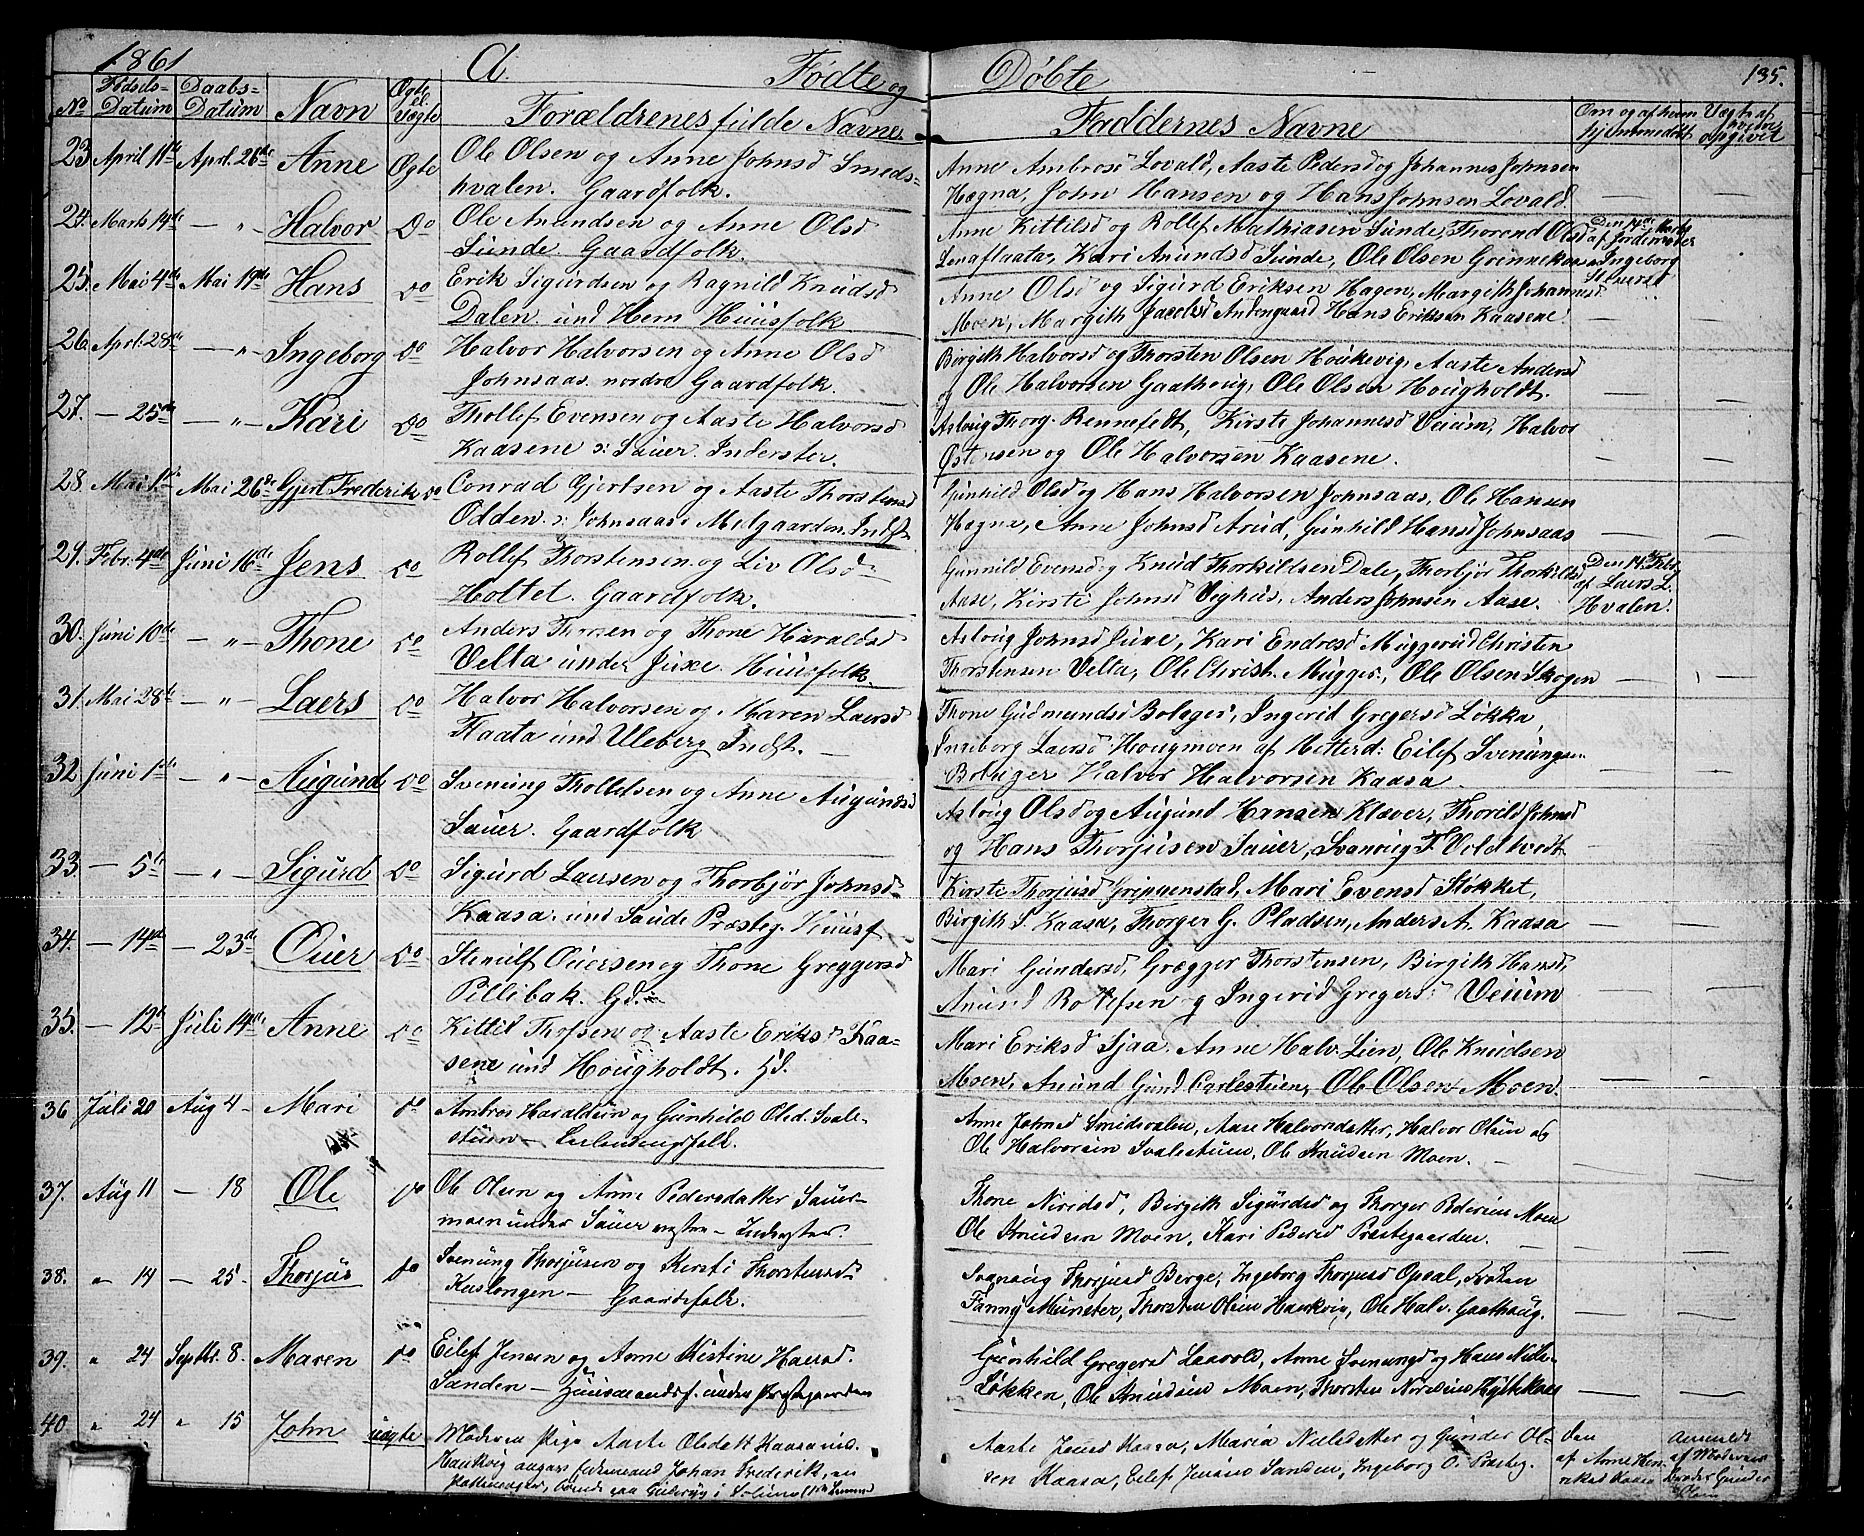 1861 A. Fødte og Døbte 135.
No Fødsels-Datum Daabs-Datum Navn Ægte el. Uægte Forældrenes fulde Navne Faddernes Navne Om og af hvem hjemmedøbt
23 April 11te Apr. 28de Anne Ægte Ole Olsen og Anne Johnsd Smeds-
hvalen. Gaardfolk.
Anne Ambrosd Lovald, Aaste Pedersd og Johannes Johnsen
Hægna, John Hansen og Hans Johnsen Lovald.
24. Marts 14de — " — Halvor Do Ole Amundsen og Anne Olsd
Sunde. Gaardfolk.
Anne Kittilsd og Rollef Mathiasen Sunde, Thorand Olsd
Lonaflaata, Kari Amundsd Sunde, Ole Olsen Grinnekaasa
Den 14de Marts
af Jordemoder
Ingeborg
25. Mai 4de Mai 19de Hans Do Erik Sigurdsen og Ragnild Knudsd
Dalen und Hem Huusfolk
Anne Olsd og Sigurd Eriksen Hagen, Margith Johannesd
Moen, Margith Jacobsd Andengaard Hans Eriksen Kaasene.
26. Apr. 28de — " — Ingeborg Do Halvor Halvorsen og Anne Olsd
Johnsaas nordre Gaardfolk.
Borgith Halvorsd og Thorsten Olsen Houkevig, Aaste Andersd
og Ole Halvorsen Gaathoug, Ole Olsen Hougholdt.
27. — 25de — " — Kari Do Thollef Evensen og Aaste Halvorsd
Kaasene s: Sauer. Inderster.
Asloug Thorg. Rennefedt, Kirste Johannesd Veium, Halvor
Østensen og Ole Halvorsen Kaasene.
28. Mai 1ste Mai 26de Gjert Frederik Do Conrad Gjertsen og Aaste Thorstensd
Odden. s: Johnsaas Melgaarden. Indst
Gunhild Olsd og Hans Halvorsen Johnsaas, Ole Hansen
Hægna, Anne Johnsd Arud, Gunhild Hansd Johnsaas
29. Febr. 4de Juni 16de Jens Do Rollef Thorstensen og Liv Olsd
Holtet. Gaardfolk.
Gunnild Evensd og Knud Thorkildsen Dale, Thorbjør Thorkildsd
Aase, Kirste Johnsd Veghus, Anders Johnsen Aase.
Den 14. Febr
af Laers L.
Hvalen.
30. Juni 10de — " — Thone Do Anders Thorsen og Thone Haraldsd
Velta under Juxe. Huusfolk.
Asloug Johnsd Juxe, Kari Endresd Muggerud Christen
Thorstensen Velta, Ole Christ. Mugger., Ole Olsen Skogen
31. Mai 28de — " — Laers Do Halvor Halvorsen og Maren Laersd
Flaata und Uleberg Indst.
Thone Gudmundsd Bolager, Ingerid Gregersd Løkka,
Ingeborg Laersd Hougmoen af Hitterd: Eilef Svenungsen
Bolager Halvor Halvorsen Kaasa.
32 Juni 1ste — " — Augund Do Svenung Thollefsen og Anne Augundsd
Sauer. Gaardfolk
Asloug Olsd og Augund Hansen Klæver, Thorild Johnsd
og Hans Thorjusen Sauer, Svanoug T. Voldtvedt
33. — 5te — " — Sigurd Do Sigurd Laersen og Thorbjør Johnsd
Kaasa. und Saude Præsteg. Huusf
Kirste Thorjusd Grimmenstad, Mari Evensd Stokket,
Birgith S. Kaasa, Thorger G. Pladsen, Anders A. Kaasa
34. — 14de — 23de Ouer Do Stenulf Ouersen og Thone Greggersd
Pillibak. Gd.
Mari Gundersd, Grægger Thorstensen, Birgith Hansd,
Amund Rollefsen og Ingerid Gregersd Veium
35. — 12te Juli 14de Anne Do Kittil Thofsen og Aaste Eriksd Kaa-
sene und Hougholdt. Hd.
Mari Eriksd Sjaa. Anne Halv. Lien, Ole Knudsen
Moen, Amund Gund. Carlestuen, Ole Olsen Moen.
36 Juli 20 Aug 4 — Mari Do Ambros Haraldsen og Gunhild Olsd. Svale-
stuen — Leilændingsfolk.
Anne Johnsd Smedsvalen, Aase Halvorsdatter, Halvor Olsen og
Ole Halvorsen Svalestuen, Ole Knudsen Moen. —
37. Aug 11 — 18 Ole Do Ole Olsen og Anne Pedersdatter Sauer-
moen under Sauer vestre — Inderster.
Thone Niridsd, Birgith Sigurdsd og Thorger Pedersen Moen
Ole Knudsen Moen, Kari Pedersd Præstegaarden. —
38. " 14 — 25 Thorjus Do Svenung Thorjusen og Kirsti Thorstensd.
Kaslongen — Gaardefolk.
Svanaug Thorjusd Berge, Ingeborg Thorjusd Opsal, Frøken
Fanny Munster, Thorsten Olsen Haukvig, Ole Halv. Gaathaug.
39. " 24 Septbr. 8. Maren Do Eilef Jensen og Anne Kistine Hansd.
Sanden — Huusmandsf. under Præstegaarden
Gunhild Gregersd Laavold, Anne Svenungsd og Hans Niels.
Løkken, Ole Knudsen Moen, Thorsten Nirisen Hytteknes
40 " 24 " 15 John uægte Moderen Pige Aaste Olsdatt Kaasa
Haukvig angav Johan Frederik, en
Aaste Jensd Kaasa, Maria Nilsdatter og Gunder Ol-
sen Kaasa, Eilef Jensen Sanden, Ingeborg O. Præsteg.
den
af Anne Hen-
riksd Kaasa
Anmeldt
af Moderens
Broder Gunder
Olsen